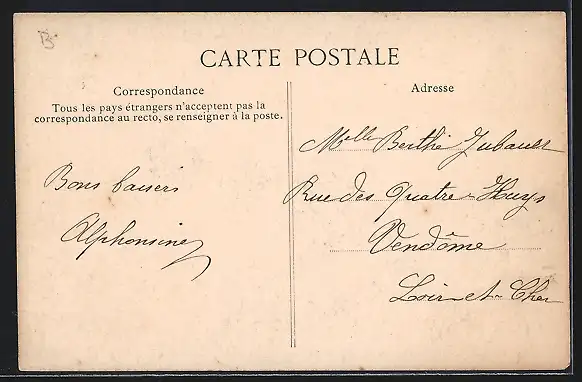 B
CARTE POSTALE
Correspondance
Tous les pays étrangers n'acceptent pas la
correspondance au recto, se renseigner à la poste.
Bons baisers
Alphonsine
Adresse
Melle Berthe Jubault
Rue des Quatre Huys
Vendôme
Loir-et-Cher